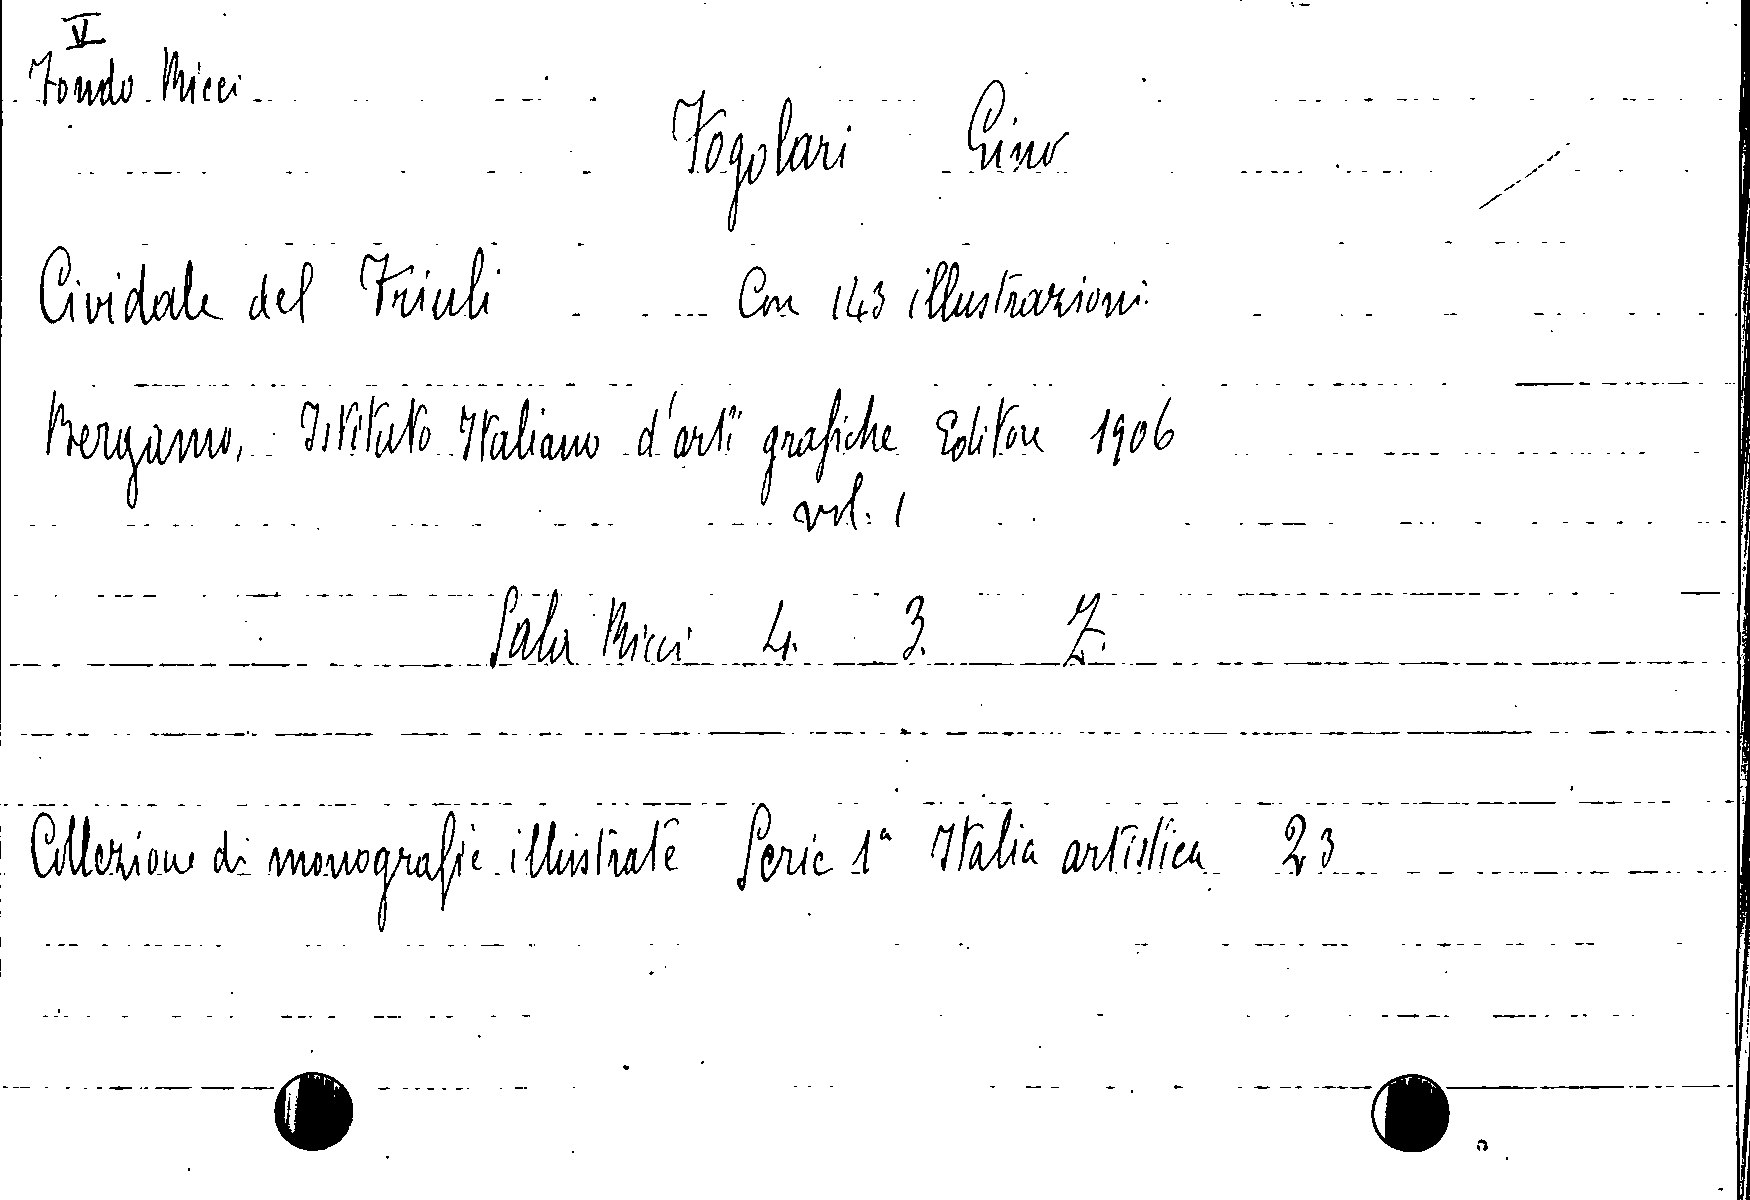 V
Fondo Ricci
Fogolari Gino
Cividale del Friuli Con 143 illustrazioni
Bergamo, Istituto Italiano d'arti grafiche Editore 1906
vol. 1
Sala Ricci 4. 3. 7.
Collezione di monografie illustrate Serie 1ª Italia artistica 23